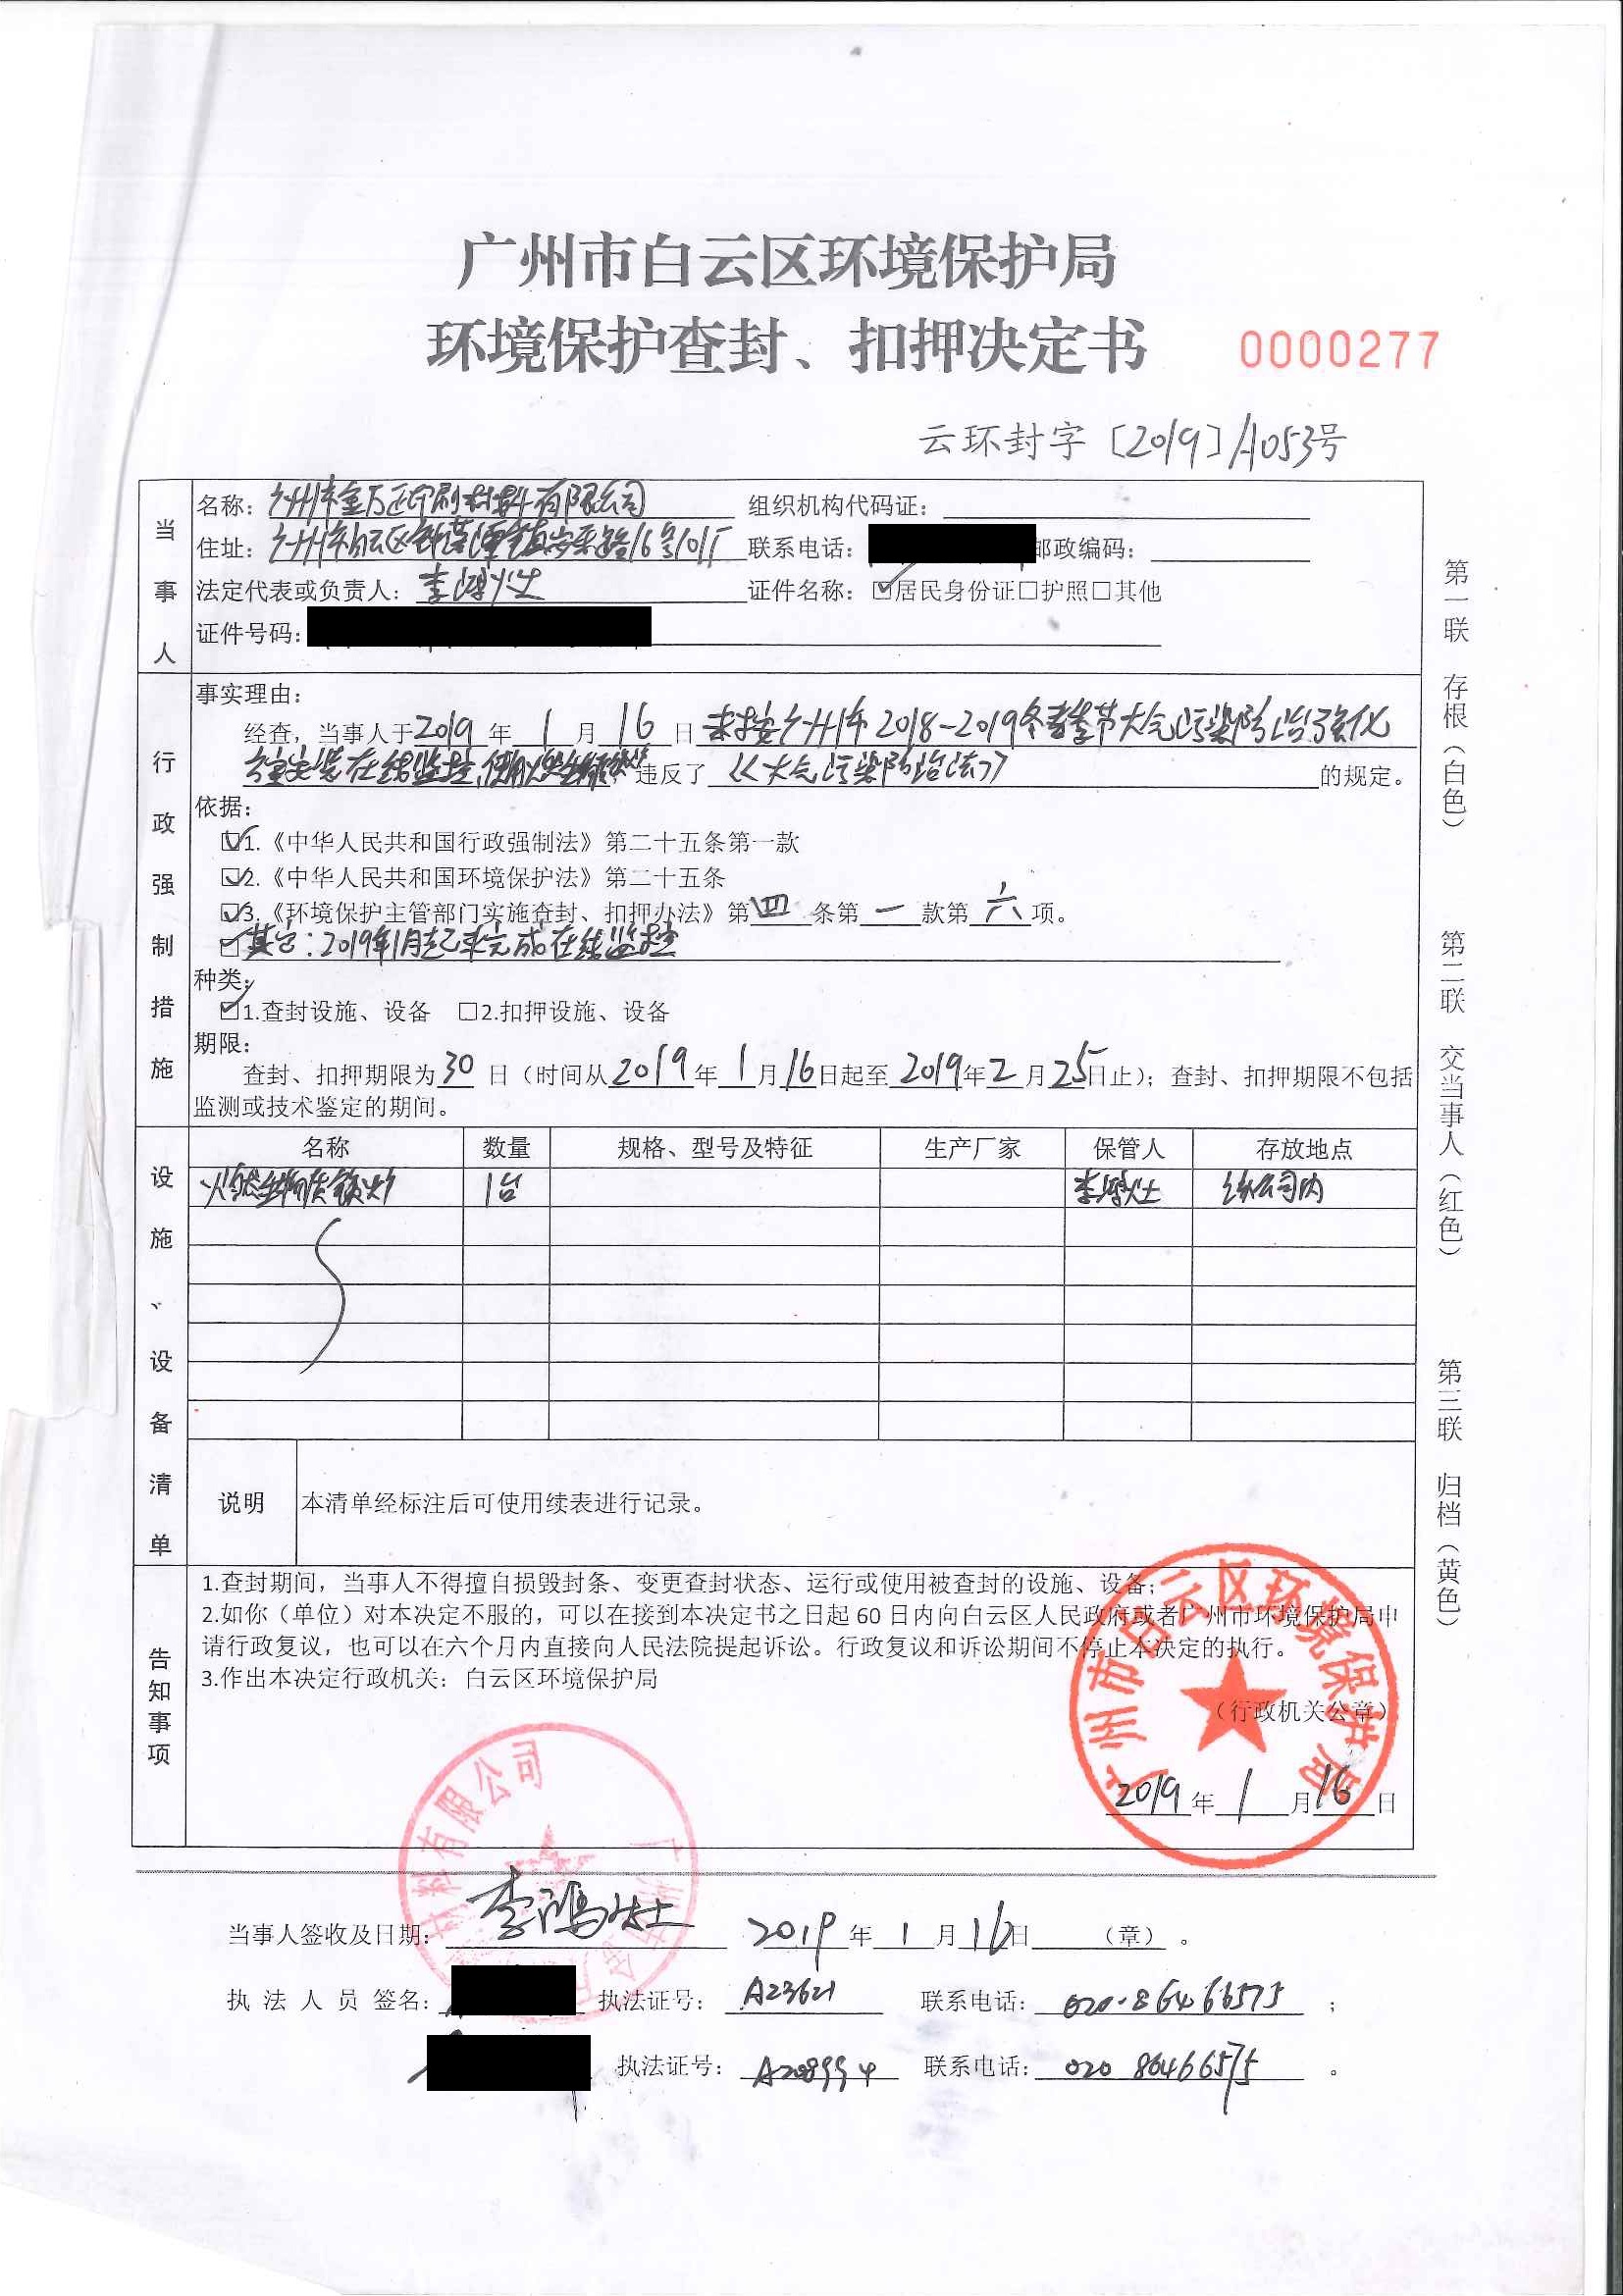 广州市白云区环境保护局
环境保护查封、扣押决定书 0000277
云环封字〔2019〕A053号
当事人
名称:广州市金万正印刷材料有限公司 组织机构代码证:
住址:广州市白云区钟落潭镇安来路16号101厂 联系电话: 邮政编码:
法定代表或负责人:李鸿灶 证件名称:☑居民身份证□护照□其他
证件号码:
行政强制措施
事实理由:
经查,当事人于2019年1月16日未按广州市2018-2019冬春季节大气污染防治强化
安装在线监控,使用 违反了《大气污染防治法》的规定。
依据:
☑1.《中华人民共和国行政强制法》第二十五条第一款
☑2.《中华人民共和国环境保护法》第二十五条
☑3.《环境保护主管部门实施查封、扣押办法》第四条第一款第六项。
☑其它:2019年1月起未完成在线监控
种类:
☑1.查封设施、设备 □2.扣押设施、设备
期限:
查封、扣押期限为30日(时间从2019年1月16日起至2019年2月25日止);查封、扣押期限不包括
监测或技术鉴定的期间。
设施、设备清单
名称 数量 规格、型号及特征 生产厂家 保管人 存放地点
燃生物质锅炉 1台 李鸿灶 该公司内
说明 本清单经标注后可使用续表进行记录。
告知事项
1.查封期间,当事人不得擅自损毁封条、变更查封状态、运行或使用被查封的设施、设备;
2.如你(单位)对本决定不服的,可以在接到本决定书之日起60日内向白云区人民政府或者广州市环境保护局申
请行政复议,也可以在六个月内直接向人民法院提起诉讼。行政复议和诉讼期间不停止本决定的执行。
3.作出本决定行政机关:白云区环境保护局
(行政机关公章)
广州市白云区环境保护局
2019年1月16日
材料有限公司
当事人签收及日期:李鸿灶 2019年1月16日(章)。
执法人员签名: 执法证号:A23621 联系电话:020-86466575;
执法证号:A208994 联系电话:020 86466575。
第一联 存根(白色)
第二联 交当事人(红色)
第三联 归档(黄色)